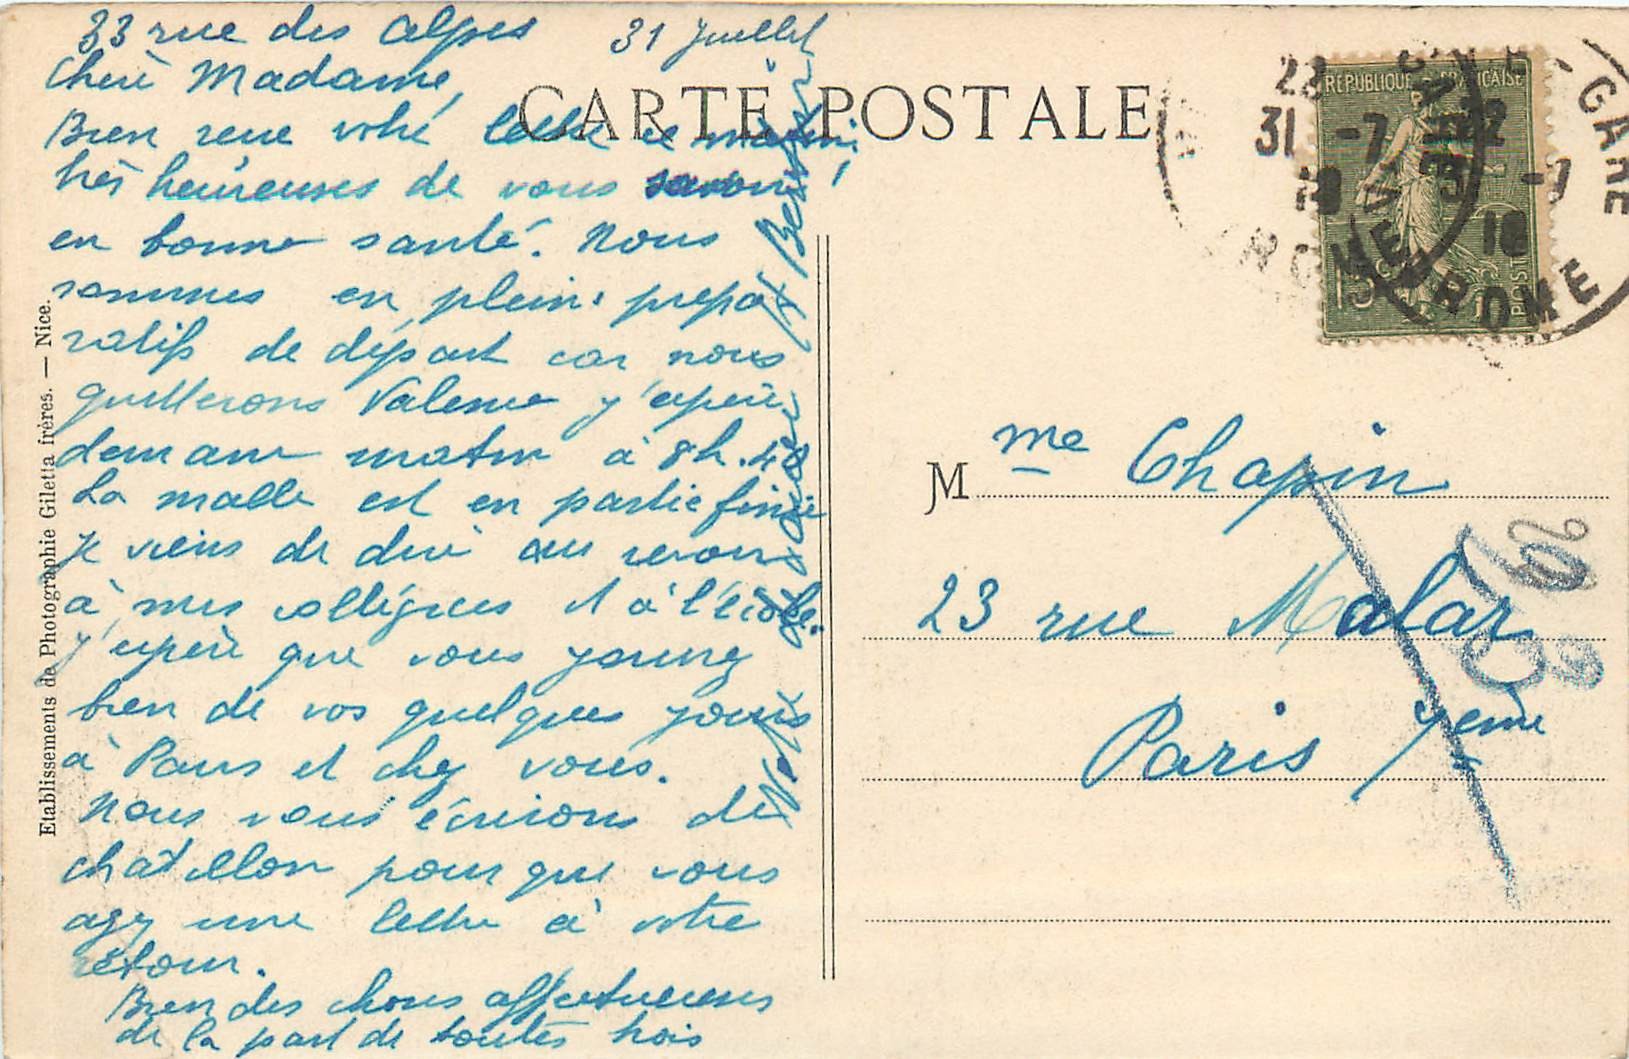 33 rue des Alpes 31 juillet
Chère Madame,
Bien reçu votre lettre ce matin
très heureuses de vous savoir
en bonne santé. Nous
sommes en plein prépa
ratifs de départ car nous
quitterons Valence j'espère
demain matin à 8h.40
La malle est en partie finie
je viens de dire au revoir
à mes collègues et à l'école.
j'espère que vous jouirez
bien de vos quelques jours
à Paris et chez vous.
Nous vous écrirons de
Chatillon pour que vous
ayez une lettre à votre
retour.
Bien des choses affectueuses
de la part de toutes trois
CARTE POSTALE
Etablissements de Photographie Giletta frères. — Nice.
REPUBLIQUE FRANÇAISE
15c
POSTES
22
31 -7
18
GARE
DROME
-7
18
Mme Chapin
23 rue Malar
Paris 7eme